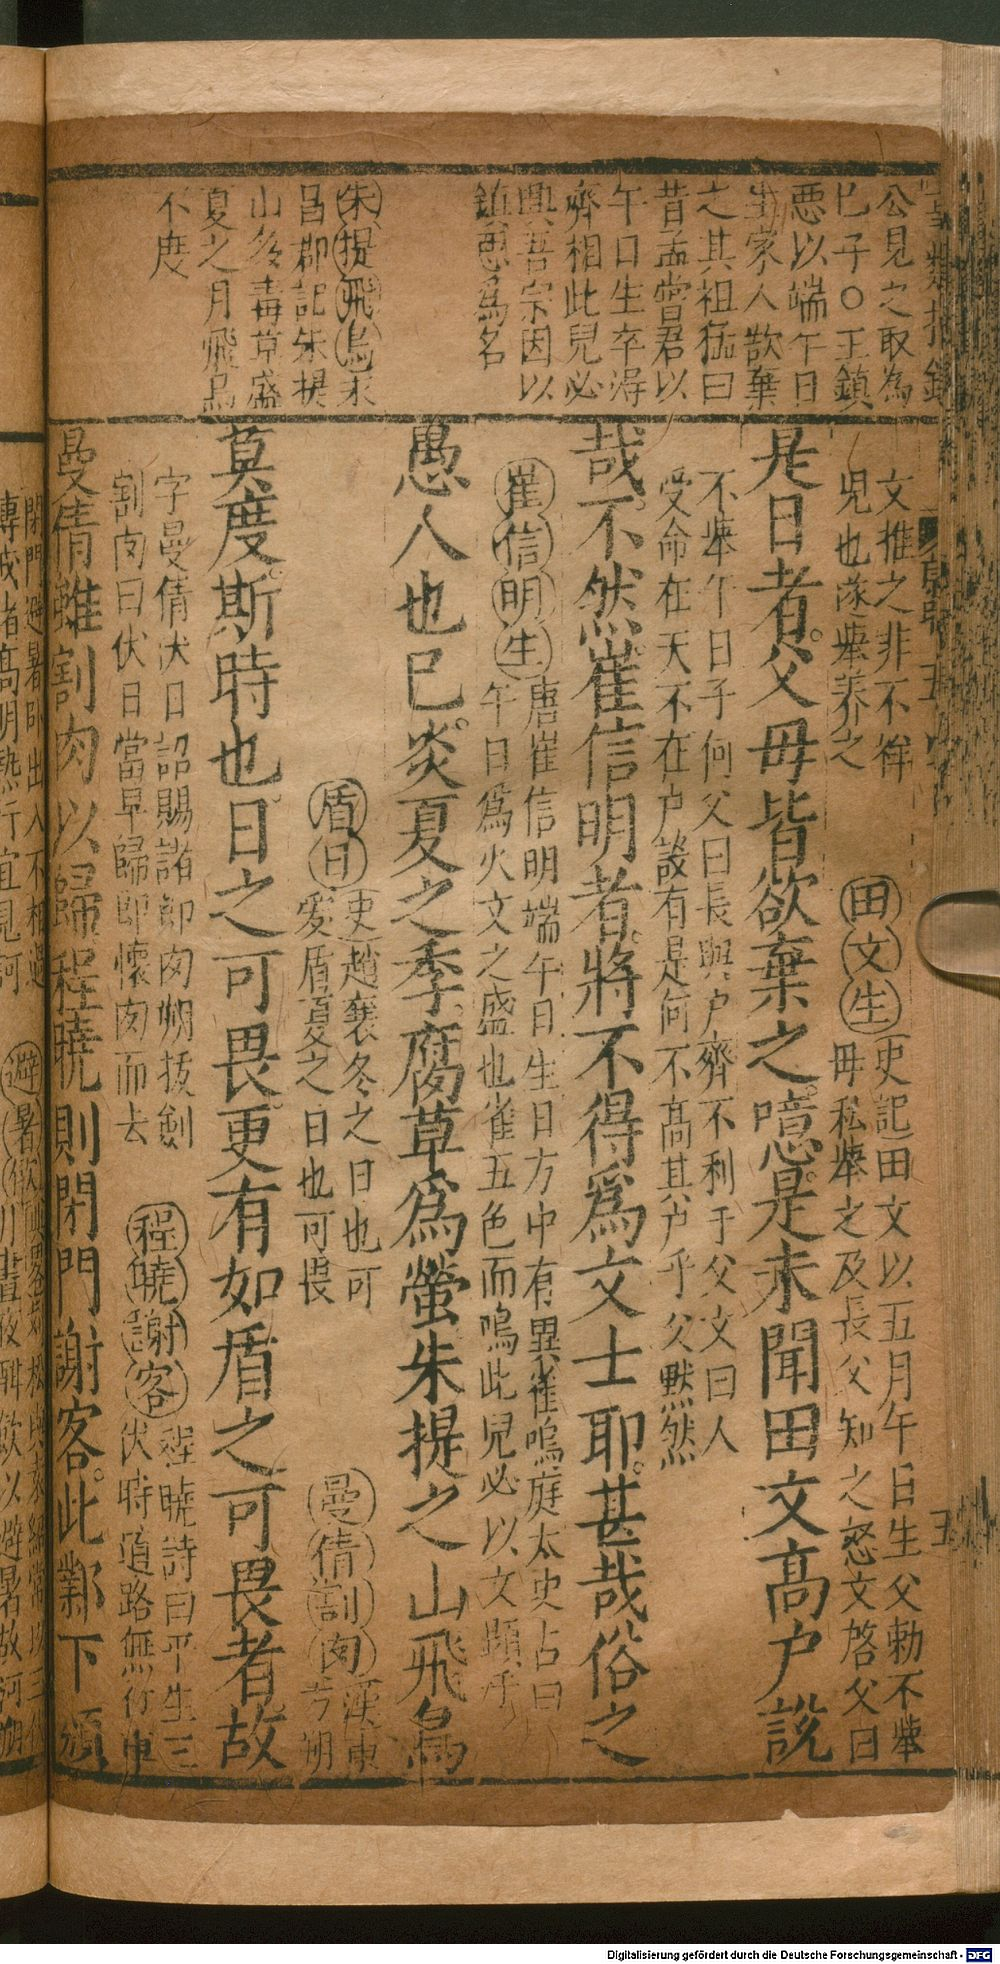 公見之取為
己子○王鎮
惡以端午日
生家人欲棄
之其祖猛曰
昔孟嘗君以
午日生卒得
齊相此兒必
興吾宗因以
鎮惡為名
朱提飛鳥朱
昌郡記朱提
山多毒草盛
夏之月飛鳥
不度
文推之非不祥
兒也遂舉养之
田文生
史記田文以五月午日生父勅不举
毋私举之及長父知之怒文啓父曰
是日者。父毋皆欲棄之。噫。是未聞田文高户說
不举午日子何父曰長與户齊不利于父文曰人
受命在天不在户設有是何不高其户乎父默然
哉。不然。崔信明者。將不得爲文士耶。甚哉俗之
崔信明生
唐崔信明端午日生日方中有異雀鳴庭太史占曰
午日爲火文之盛也雀五色而鳴此兒必以文顯乎
愚人也已。炎夏之季。腐草爲螢朱提之山飛鳥
盾日
史趙衰冬之日也可
爱盾夏之日也可畏
曼倩割肉
漢東
方朔
莫度。斯時也。日之可畏。更有如盾之可畏者。故
字曼倩伏日詔賜諸郎肉朔拔劍
割肉曰伏日當早歸即懷肉而去
程曉謝客
程曉詩曰平生三
伏時道路無行車
曼倩雖割肉以歸程曉則閉門謝客。此鄴下頒
閉門避暑
出入不相過
避暑飲
Digitalisierung gefördert durch die Deutsche Forschungsgemeinschaft - DFG